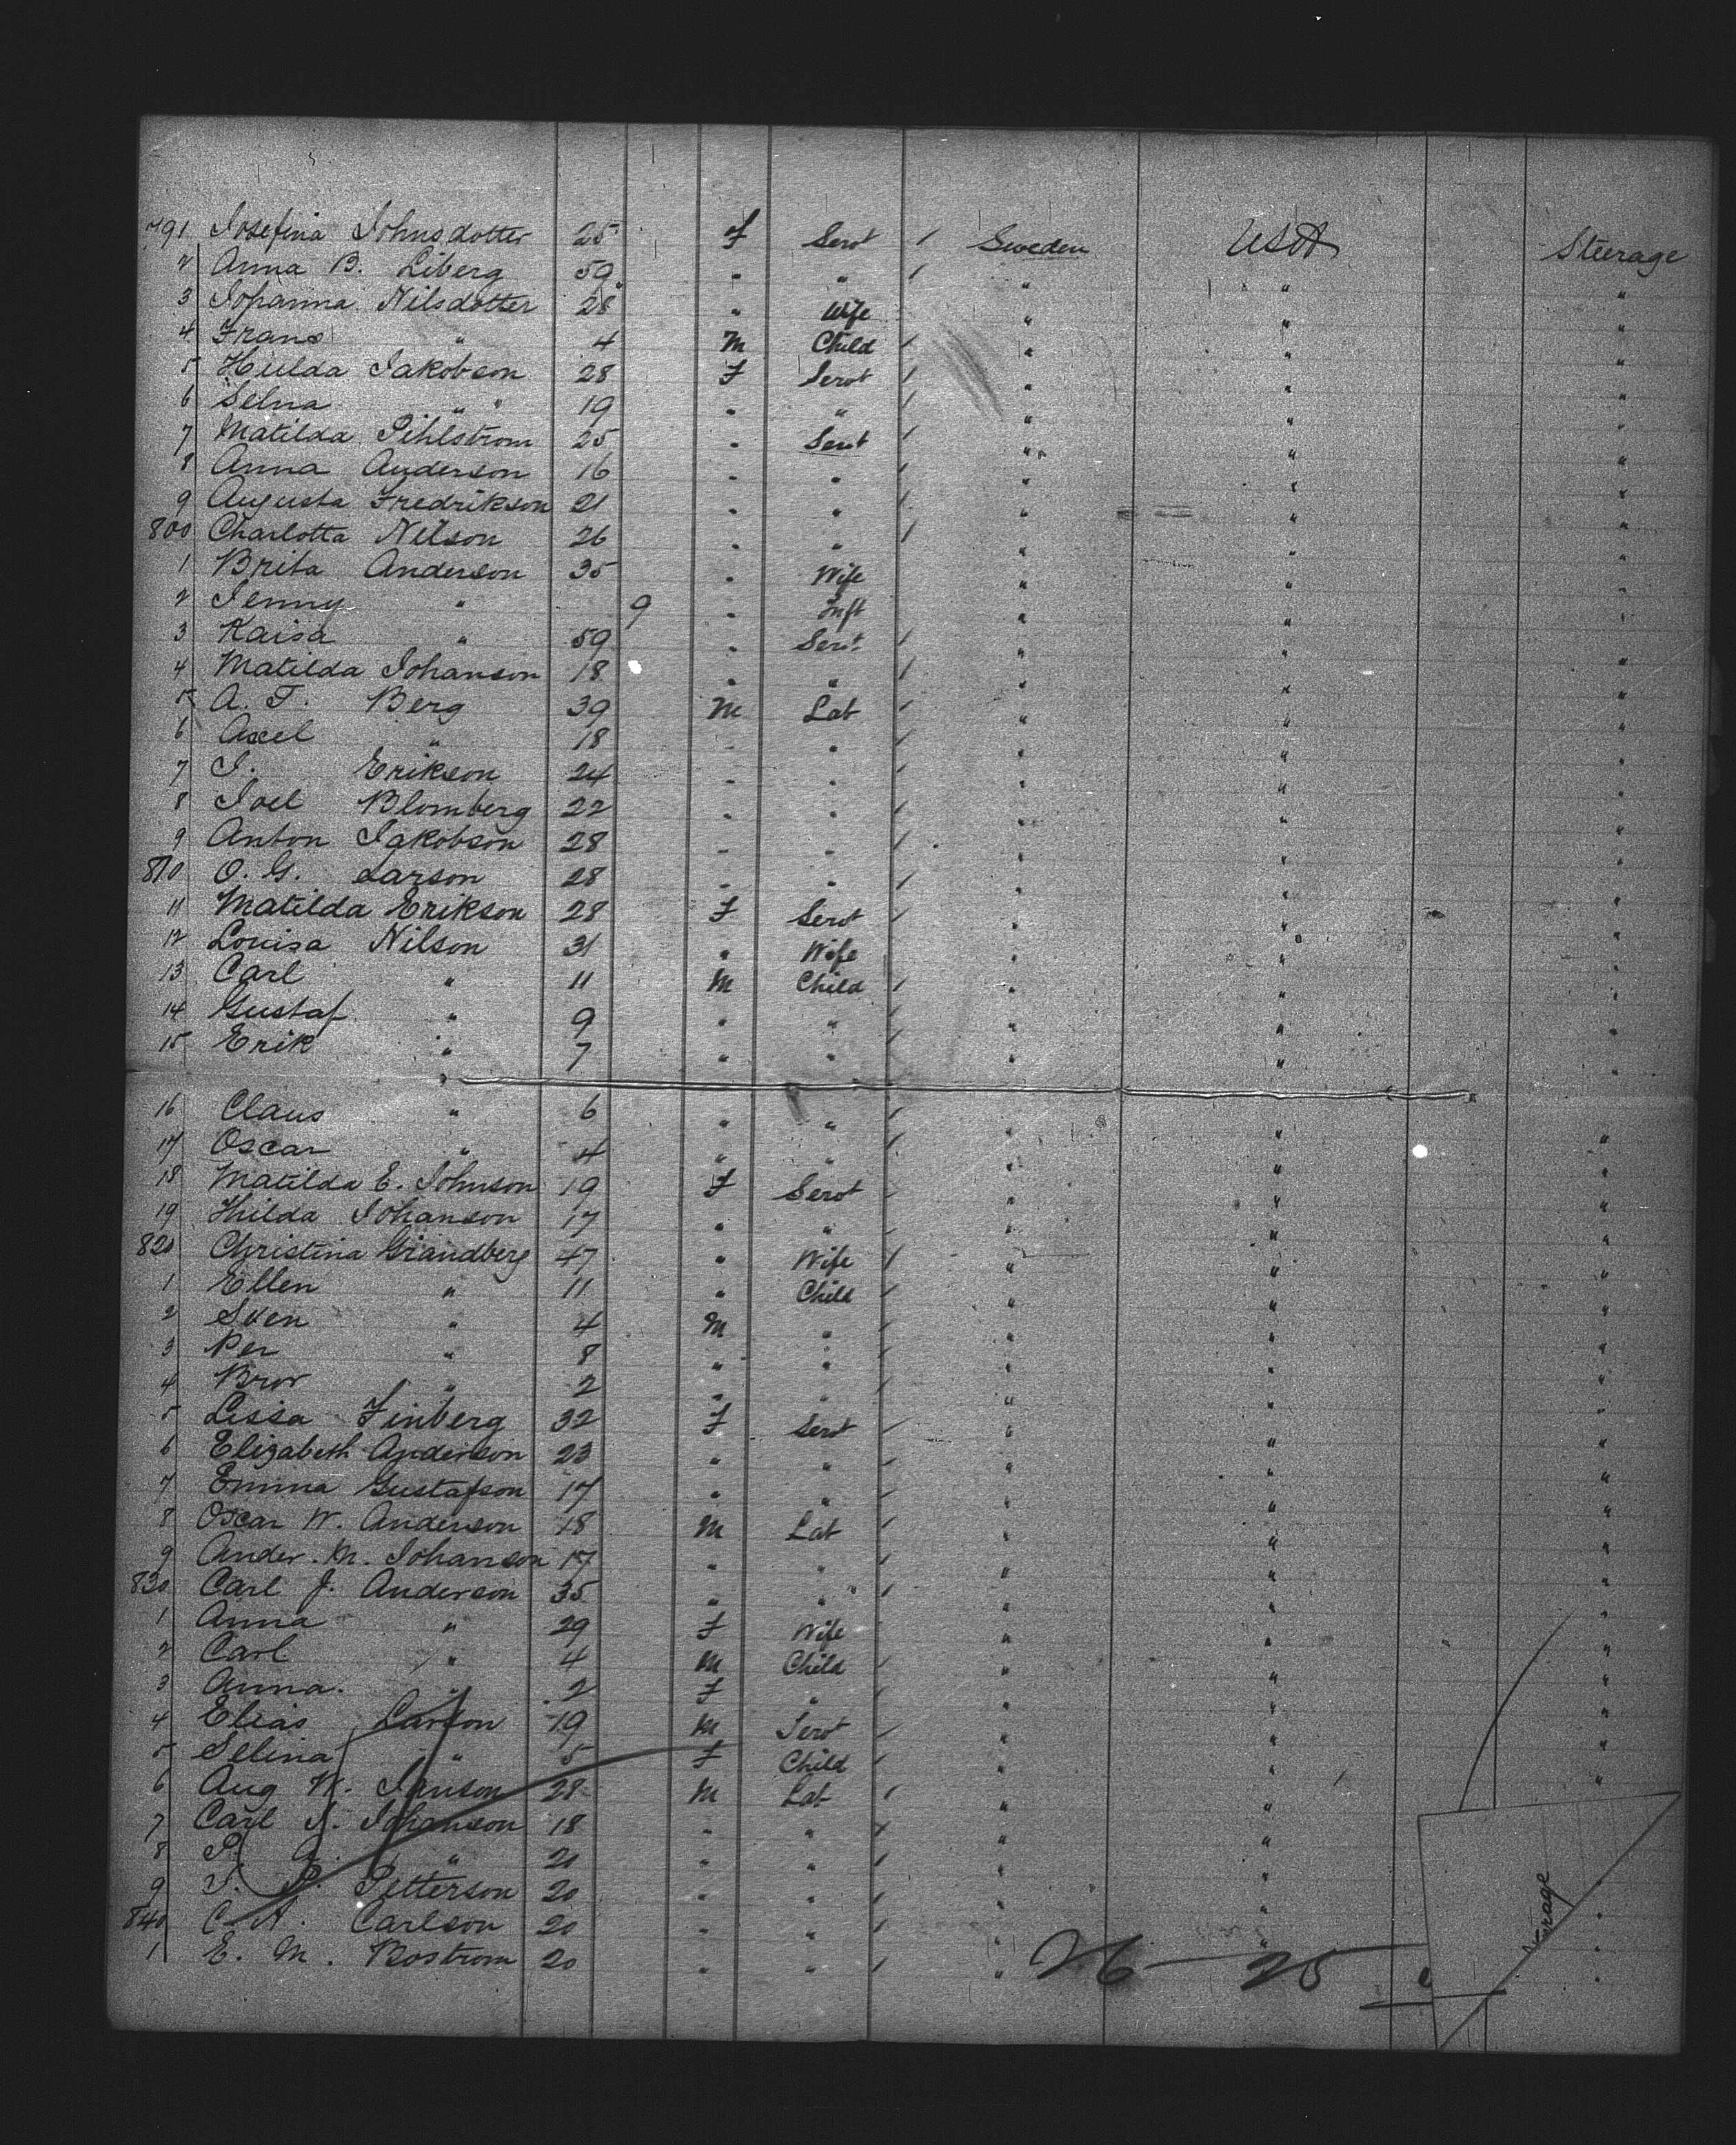 791 Josefina Johnsdotter 25 F Servt / Sweden USA Steerage
2 Anna B. Liberg 59 " " / " " "
3 Johanna Nilsdotter 28 " Wife " " "
4 Frans " 4 M Child / " " "
5 Hulda Jakobson 28 F Servt / " " "
6 Selma " 19 " " / " " "
7 Matilda Pihlstrom 25 " Servt / " " "
8 Anna Anderson 16 " " / " " "
9 Augusta Fredrikson 21 " " / " " "
800 Charlotta Nelson 26 " " / " " "
1 Brita Anderson 35 " Wife " " "
2 Jenny " 9 " Inft " " "
3 Kaisa " 59 " Servt / " " "
4 Matilda Johanson 18 " " / " " "
5 A. T. Berg 39 M Lab / " " "
6 Axel " 18 " " / " " "
7 J. Erikson 24 " " / " " "
8 Joel Blomberg 22 " " / " " "
9 Anton Jakobson 28 " " / " " "
810 O. G. Larson 28 " " / " " "
11 Matilda Erikson 28 F Servt / " " "
12 Louisa Nilson 31 " Wife " " "
13 Carl " 11 M Child / " " "
14 Gustaf " 9 " " / " " "
15 Erik " 7 " " / " " "
16 Claus " 6 " " / " " "
17 Oscar " 4 " " / " " "
18 Matilda E. Johnson 19 F Servt / " " "
19 Hilda Johanson 17 " " / " " "
820 Christina Grandberg 47 " Wife / " " "
1 Ellen " 11 " Child / " " "
2 Sven " 4 M " / " " "
3 Per " 8 " " / " " "
4 Bror " 2 " " / " " "
5 Lissa Finberg 32 F Servt / " " "
6 Elizabeth Anderson 23 " " / " " "
7 Emma Gustafson 17 " " / " " "
8 Oscar W. Anderson 18 M Lab / " " "
9 Ander. M. Johanson 17 " " / " " "
830 Carl J. Anderson 35 " " / " " "
1 Anna " 29 F Wife " " "
2 Carl " 4 M Child / " " "
3 Anna. " 2 F " / " " "
4 Elias Larson 19 M Servt / " " "
5 Selina " 5 F Child / " " "
6 Aug W. Janson 28 M Lab / " " "
7 Carl J. Johanson 18 " " / " "
8 " 21 " " / " "
9 P. Petterson 20 " " / " "
840 C. A. Carlson 20 " " / " " "
1 E. M. Bostrom 20 " " / " "
26 - 25